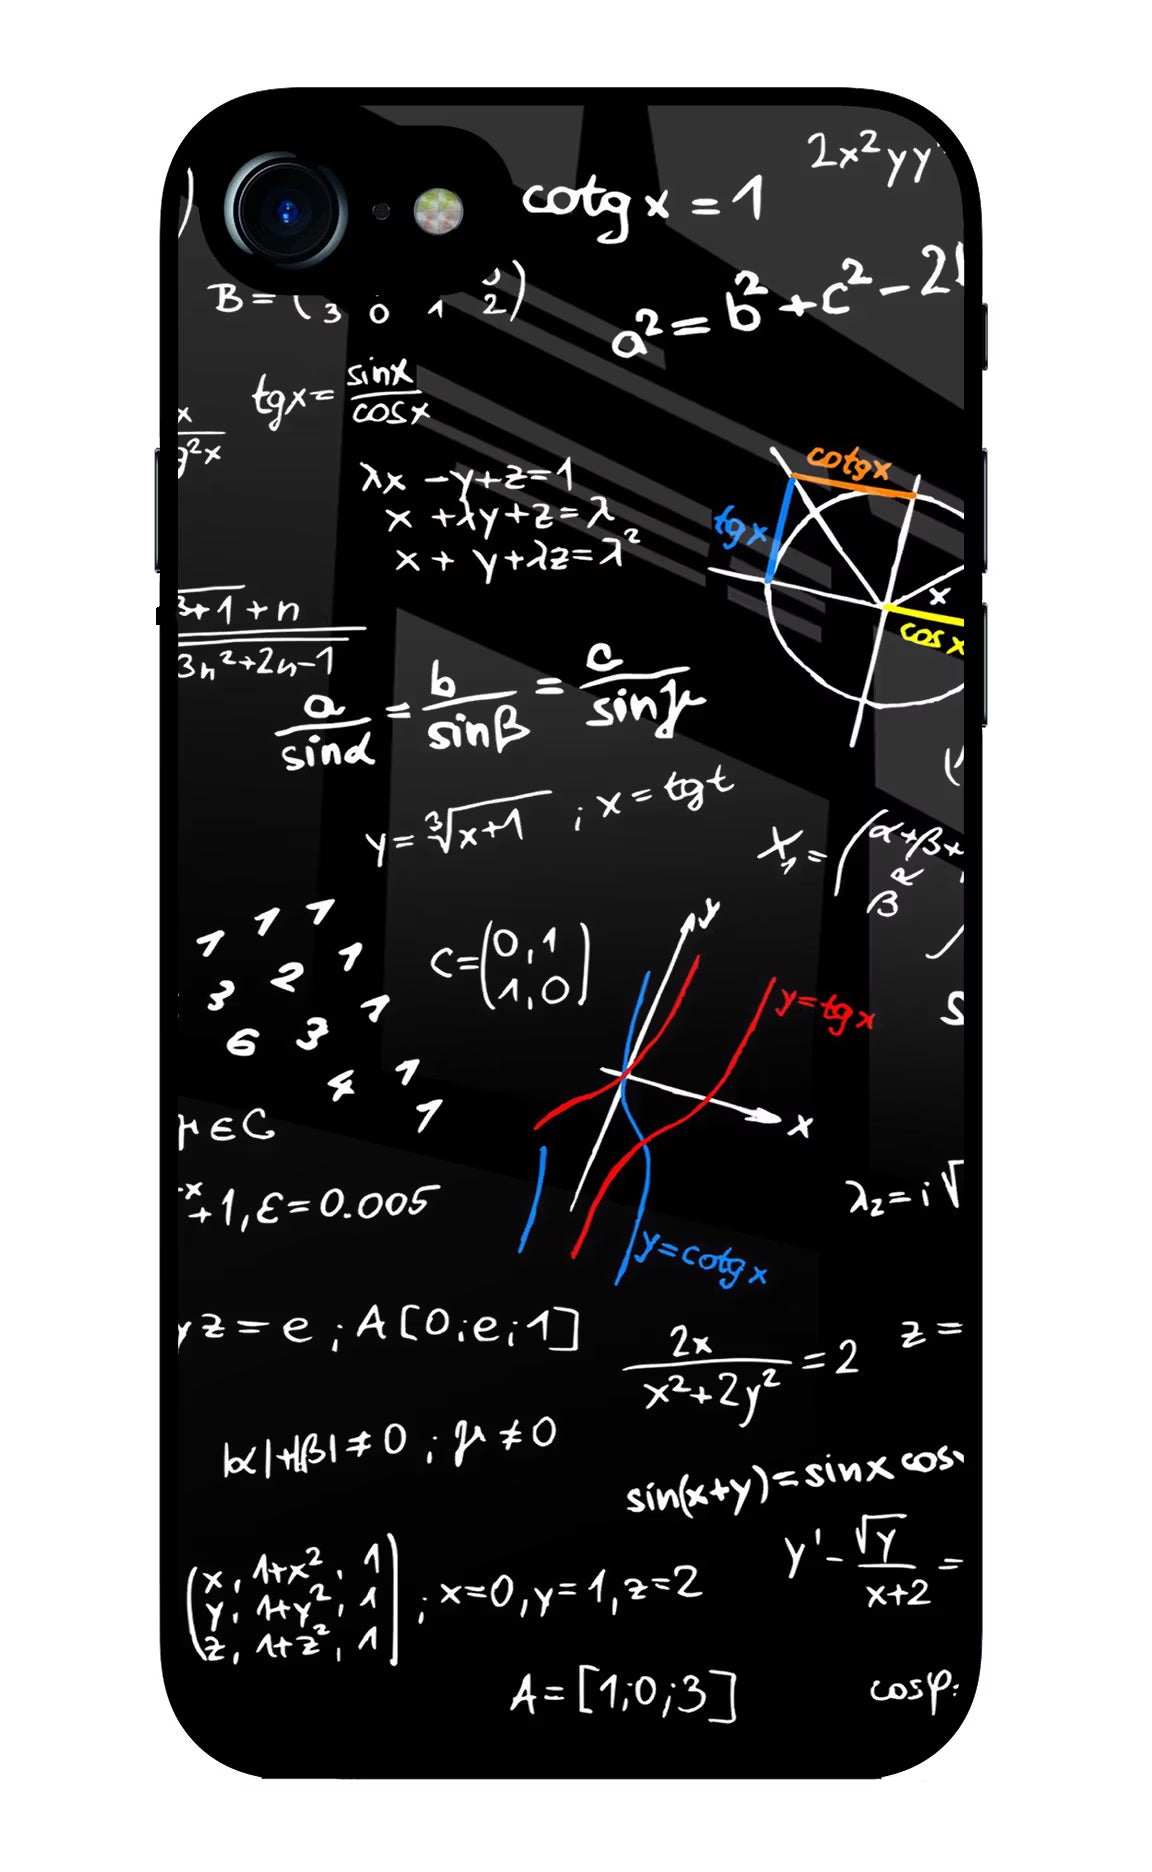 2x²yy
cotg x = 1
a² = b² + c² - 2
B = ( 3 0 1 2 )
tgx = sinx / cosx
x
g²x
λx - y + z = 1
x + λy + z = λ
x + y + λz = λ²
cotgx
tgx
x
cos x
3+1 + n
3n² + 2n - 1
a / sinα = b / sinβ = c / sinγ
y = ∛(x+1) ; x = tgt
X₁ = ( α+β+
β α
1 1 1
3 2 1
6 3 1
4 1
1
C = (0,1
1,0)
y
y=tgx
x
y=cotgx
S
∈ C
-x + 1, ε = 0.005
λ₂ = i√
yz = e ; A[0;e;1]
2x / x²+2y² = 2
z =
|α|+|β| ≠ 0 ; μ ≠ 0
sin(x+y) = sinx cos
y' - √y / x+2 =
(x, 1+x², 1
y, 1+y², 1
z, 1+z², 1) ; x=0, y=1, z=2
A = [1;0;3]
cosφ